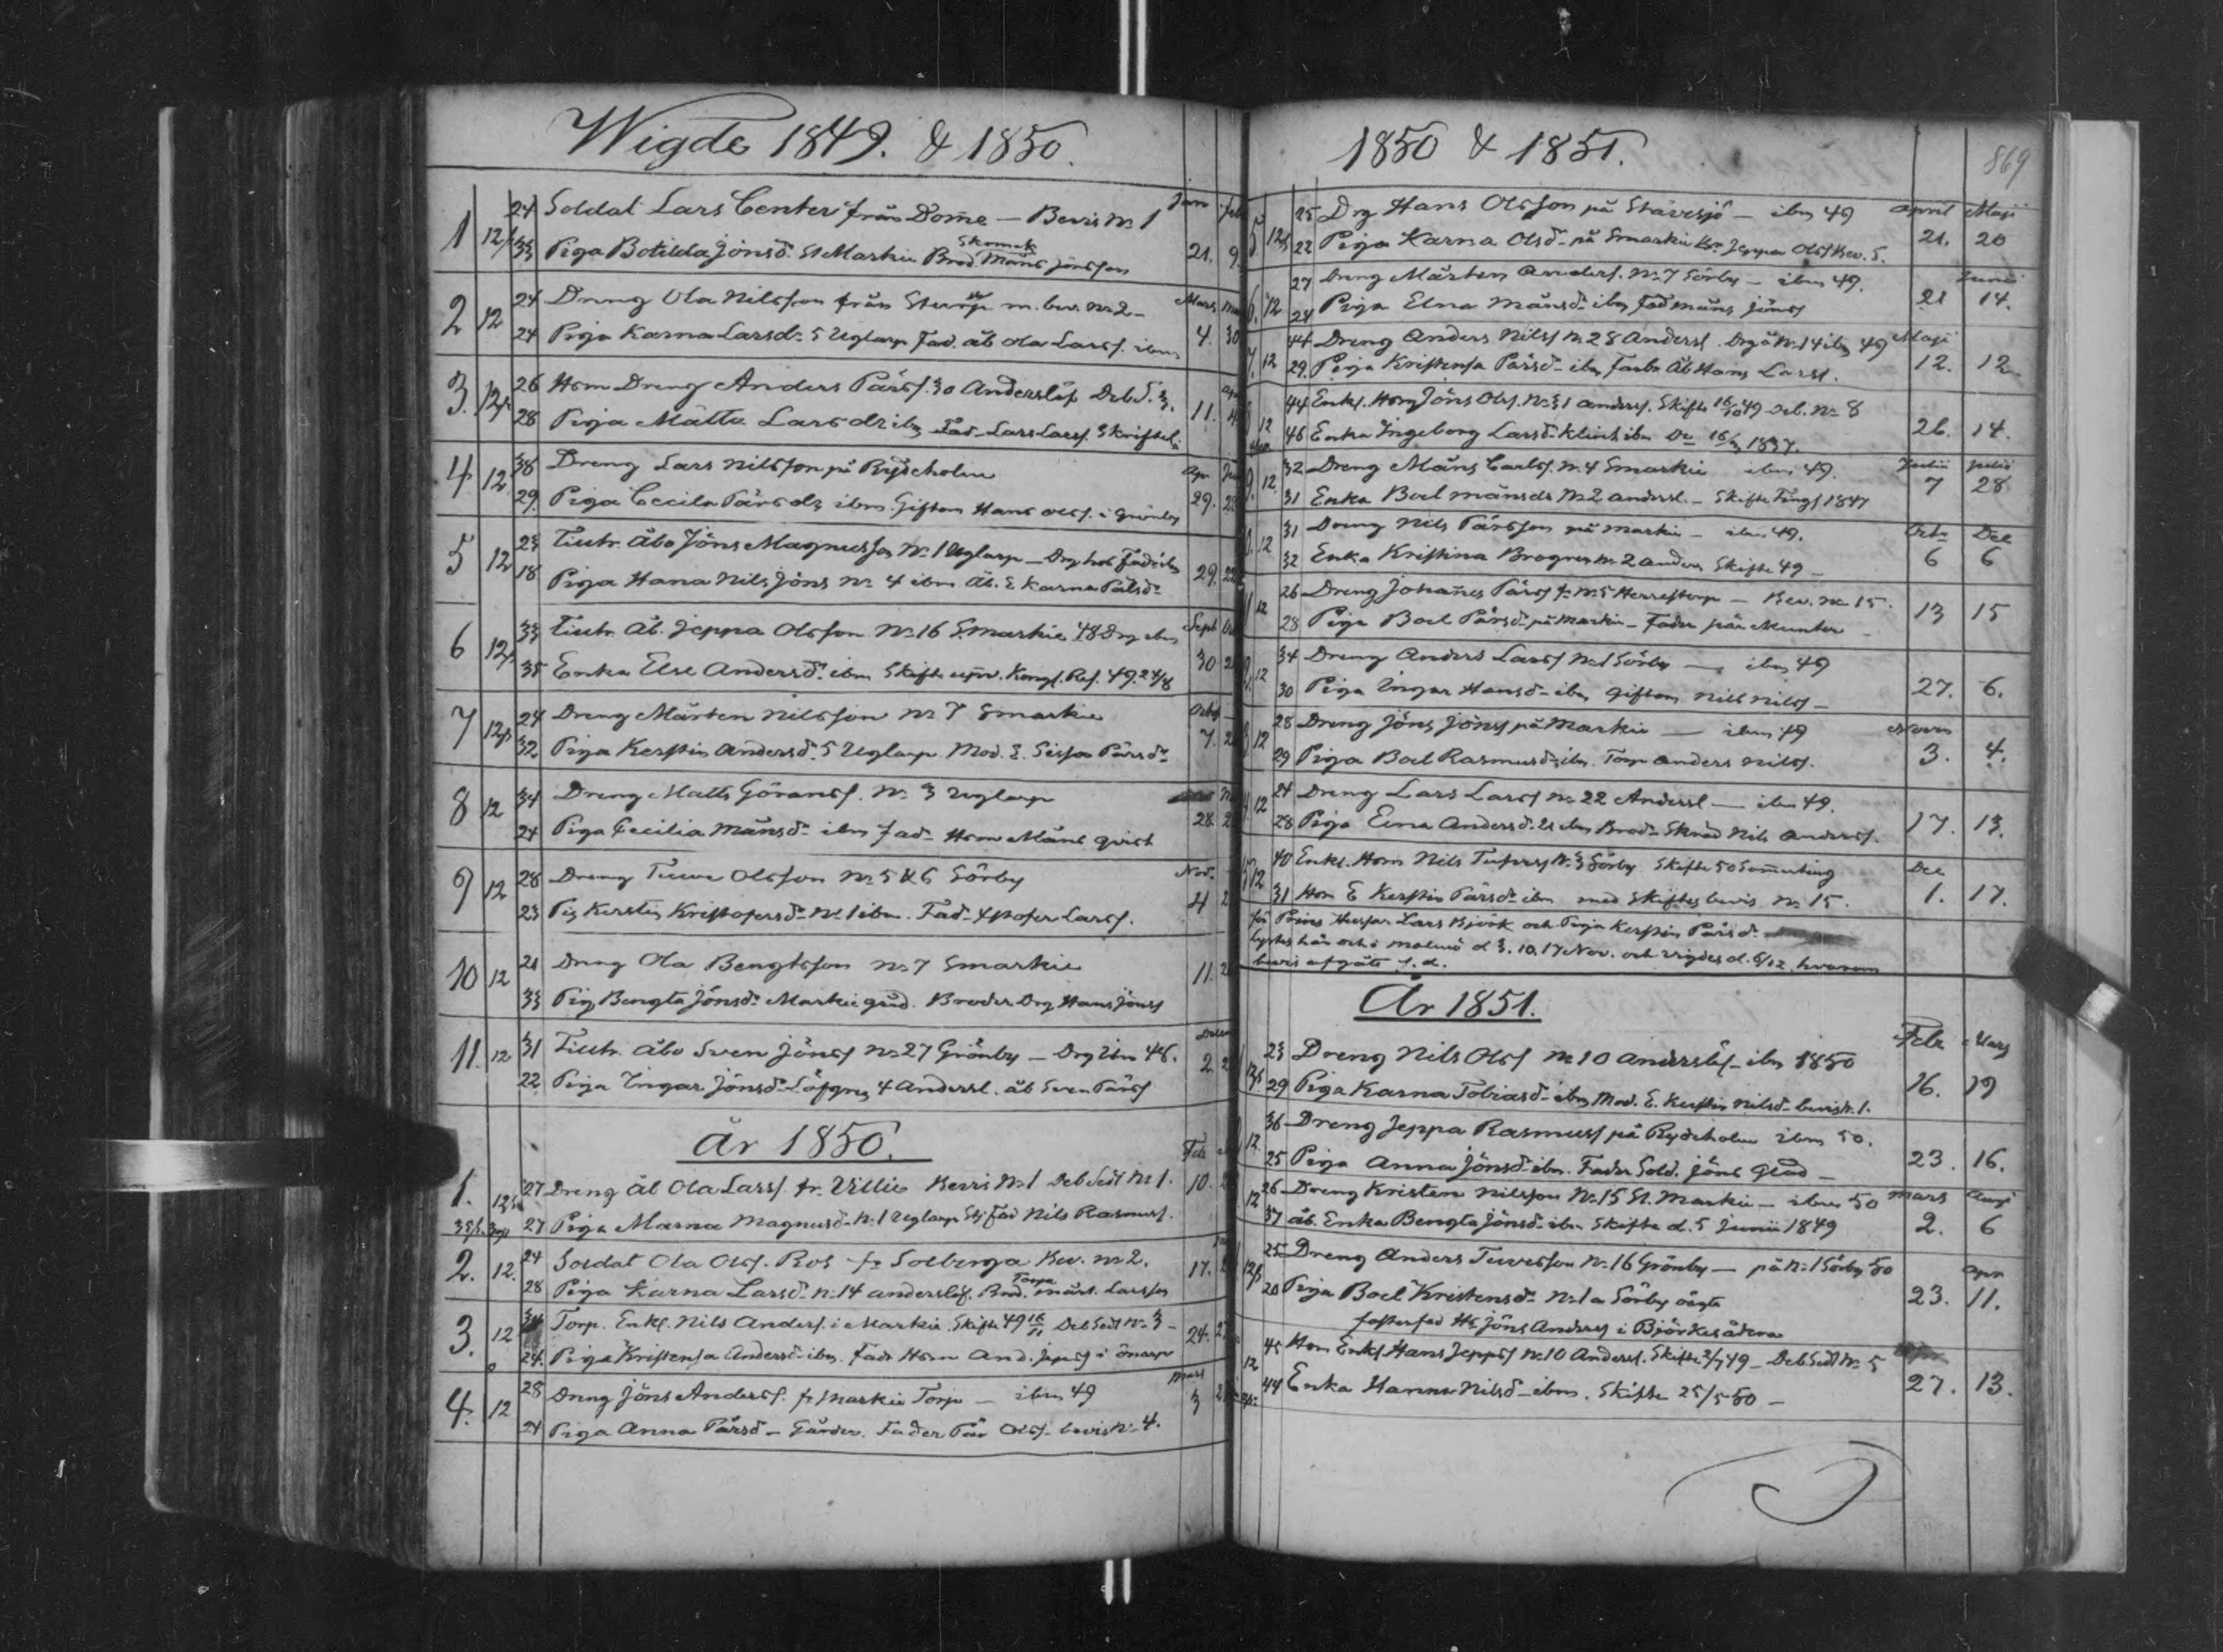 Wigde 1849. & 1850.
Jan Feb
1 12 24 Soldat Lars Center från Dome — Bevis No 1
33 Piga Botilda Jönsd. St Markie Brod. Skomak Måns Jönsson 21. 9.
Mars
2 12 24 Dreng Ola Nilsson från m. bev. No 2 —
24 Piga Karna Larsd. 5 Uglarp Fad. åb Ola Larss. ibm 4. 30
3. 12 26 Hsm Dreng Anders Pärss. 30 Anderslöf Deb. S. 3.
28 Piga Lars ibm Fad. Lars Larss. Skriftel. 11. 4
Apr
4 12 38 Dreng Lars Nilsson på Rydsholm
29. Piga Cecila Pärsdr ibm. Giftom Hans Olss. i Grönby 29.
5 12 23 Tiltr. Åbo Jöns Magnusson No 1 Uglarp — Drg hos Fad ibm
18 Piga Hana Nils Jöns No 4 ibm Åb. E Karna Pålsd. 29. 22
Sept
6 12 33 Tiltr. Åb. Jeppa Olsson No 16 S. Markie 48 Drg ibm
35 Enka Else Andersd. ibm Skifte Kongl. Ref. 49. 24/8 30
Octob
7 12 24 Dreng Mårten Nilsson No 7 S markie
32 Piga Kerstin Andersd. 5 Uglarp Mod. E. Sissa Pärsd. 7.
8 12 34 Dreng Matts Göranss. No 3 Uglarp
24 Piga Cecilia Månsd. ibm Fad. Hsm Måns Qvist 28.
Nov.
9 12 28 Dreng Tuve Olsson No 5 & 6 Sörby
23 Pig Kerstin Kristofersd. No 1 ibm. Fad. Xstofer Larss. 4
10 12 21 Dreng Ola Bengtsson No 7 Smarkie 11.
33 Pig Bengta Jönsd. Markie grd. Broder Drg Hans Jönss
11. 12 31 Tiltr. Åbo Sven Jönss No 27 Grönby — Drg ibm 48. 2
22 Piga Ingar Jönsd. Löfgren 4 Andersl. åb Sven Pärss
År 1850.
Feb
1. 12 27 Dreng Åb Ola Larss. fr. Villie Bevis No 1 Deb Sedl No 1. 10.
27 Piga Marna Magnusd. No 1 Uglarp Stj Fad Nils Rasmuss.
2. 12. 24 Soldat Ola Olss. Ros fr Solberga Bev. No 2. 17.
28 Piga Karna Larsd. No 14 anderslöf. Brod. Torp Mårt. Larsson
3. 12 34 Torp. Enkl. Nils Anders. i Markie. Skifte 49 16/11 Deb Sedl No 3 — 24.
24. Piga Kristensa Andersd. ibm. Fadr Hsm And. Jepss i Önnarp
Mars
4. 12 28 Dreng Jöns Anderss. fr Markie Torp — ibm 49 3
24 Piga Anna Pärsd — Gärden. Fader Pär Olss. bevis No 4.
1850 & 1851.
869
April Maji
12 25 Drg Hans Olsson på Stävesjö — ibm 49 21. 20
22 Piga Karna Olsd. på Smarkie Br. Jeppa Olss Bev. 5.
Junii
6. 12 27 Dreng Mårten Anders. No 7 Sörby — ibm 49. 21 14.
24 Piga Elna Månsd. ibm Fad Måns Jönss
Maji
7. 12 44 Dreng Anders Nilss No 28 Andersl. Drg å No 14 ibm 49
29. Piga Kristensa Pärsd. ibm Farbr Åb Hans Larss. 12. 12
12 44 Enkl. Hsm Jöns Olss. No 31 anders. Skifte 16/10 49 Deb. No 8
46 Enka Ingeborg Larsd. Klint ibm Do 1837. 26. 14.
Junii Julii
9. 12. 32 Dreng Måns Carls. No 4 Smarkie ibm 49. 7 28
31 Enka Boel Månsdr No 2 andersl. — Skifte Tings 1847
Octr Dec
12 31 Dreng Nils Pärsson på Markie — ibm 49. 6 6
32 Enka Kristina Brogren No 2 anders Skifte 49 —
12 26 Dreng Johannes Pärss fr No 5 Herrestorp — Bev. No 15. 13 15
28 Piga Boel Pärsd. på Markie — Fader Pär Munter —
12 34 Dreng Anders Larss No 1 Sörby — ibm 49
30 Piga Ingar Hansd. ibm Giftom Nils Nilss — 27. 6.
Novr
12 28 Dreng Jöns Jönss på Markie — ibm 49 3. 4.
29 Piga Boel Rasmusd. ibm. Torp Anders Nilss.
12 24 Dreng Lars Larss No 22 Andersl — ibm 49.
28 Piga Elna Andersd. 21 ibm Brod. Skräd Nils Anderss. 17. 13.
Dec
12 40 Enkl. Hsm Nils No 3 Sörby Skifte 50 Sommarting 1. 17.
31 Hsm E Kerstin Pärsd. ibm med Skiftes bevis No 15.
för Prins Husar Lars Björk och Piga Kerstin Pärsd.
lystes här och i Malmö d 3. 10. 17 Nov. och vigdes d. 6/12, hvarom
bevis afgåtts s. d.
År 1851.
Febr Mars
12 23 Dreng Nils Olss No 10 Anderslöf — ibm 1850
29 Piga Karna Tobiasd. ibm Mod. E. Kerstin Nilsd. bevis No 1. 16. 19
12. 36 Dreng Jeppa Rasmuss på Rydsholm ibm 50.
25 Piga Anna Jönsd. ibm. Fader Sold. Jöns Glad — 23. 16.
Mars Aug
12 26 Dreng Kristen Nilsson No 15 St. Markie — ibm 50
37 åb. Enka Bengta Jönsd. ibm Skifte d. 5 Junii 1849 2. 6
Apr
12 25 Dreng Anders Tuvesson No 16 Grönby — på No 1 Sörby 50
20 Piga Boel Kristensd. No 1 a Sörby oägta 23. 11.
fosterfad Hs Jöns Anderss i Björkesåkra
12 45 Hsm Enkl Hans Jeppss No 10 Andersl. Skifte 2/7 49 — Deb Sedl No 5
44 Enka Hanna Nilsd — ibm. Skifte 25/5 50 — 27. 13.